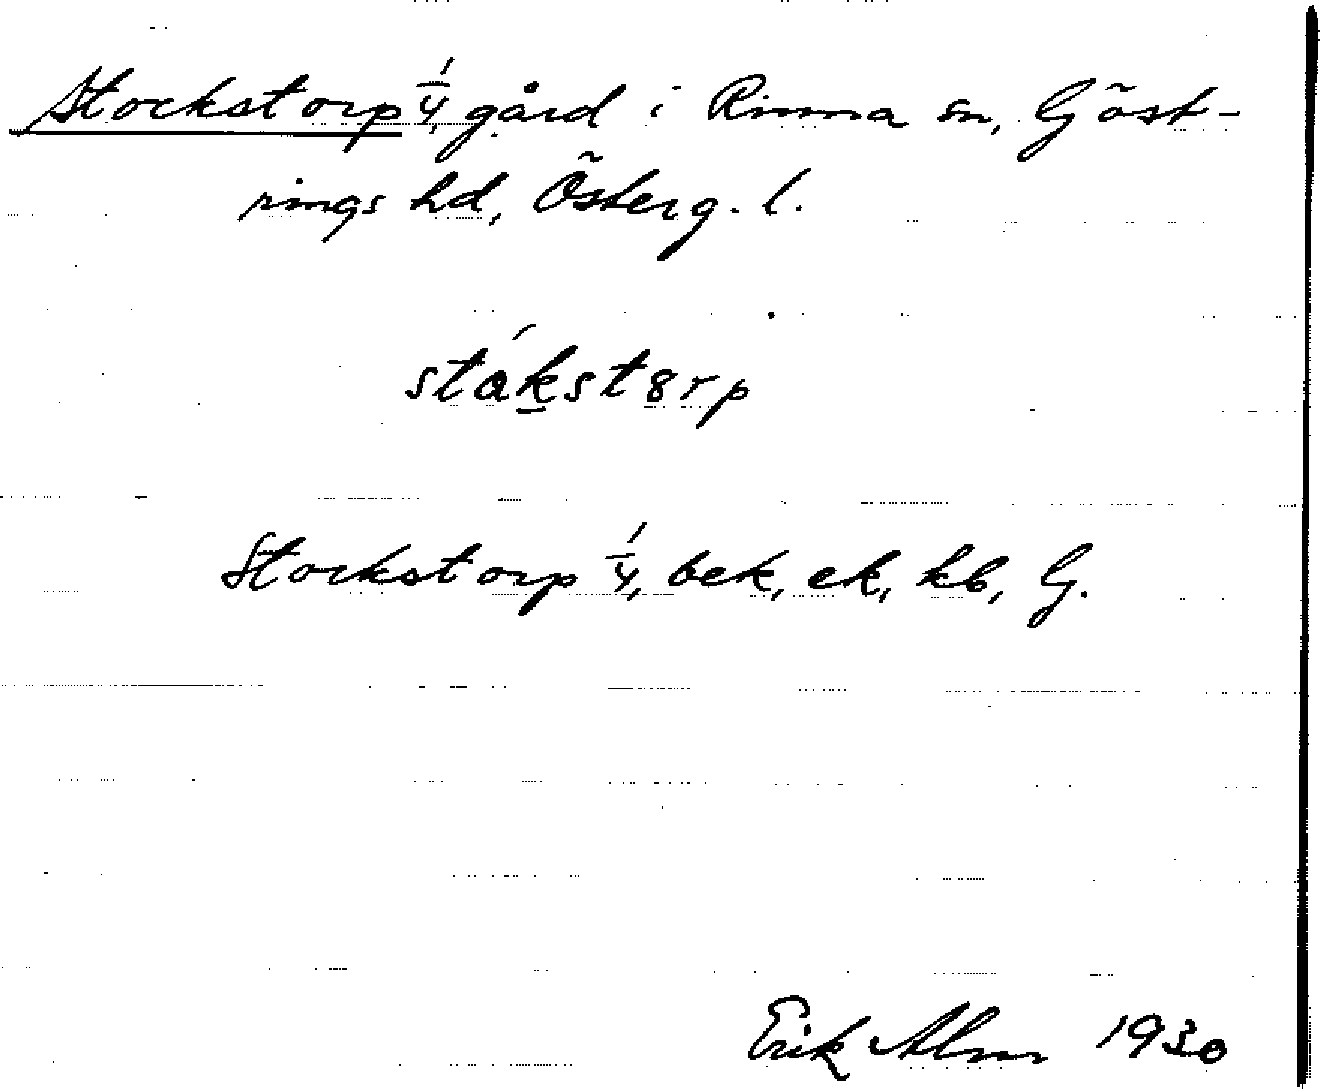 Stockstorp 1/4, gård i Rinna sn, Göst-
rings hd, Österg. l.
stákst8rp
Stockstorp 1/4, bek, ek, kb, G.
Erik Alm 1930